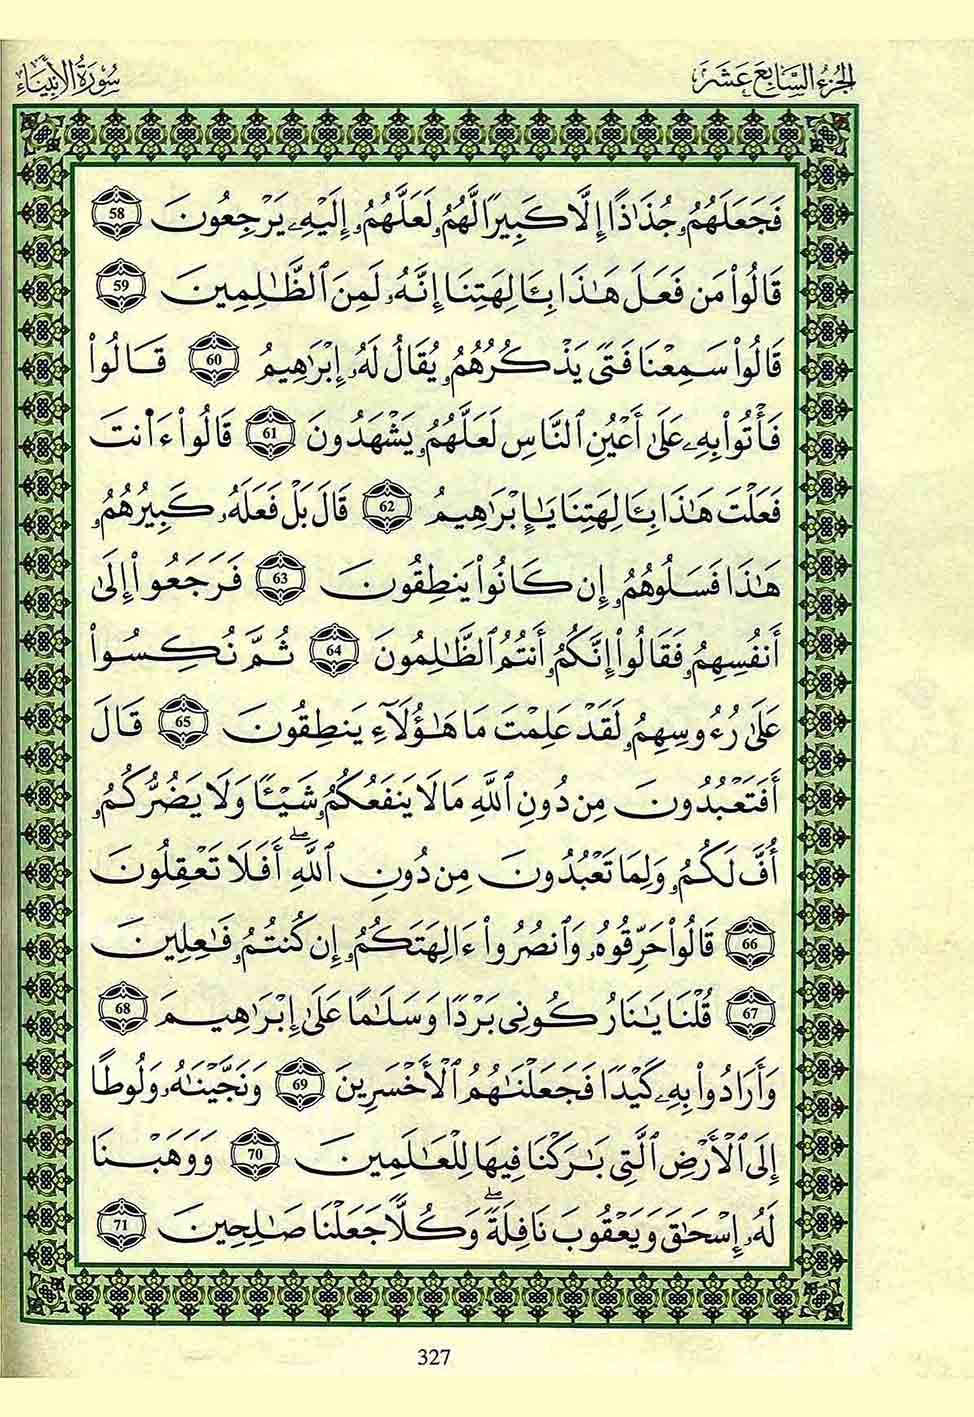 الجزء السابع عشر
سورة الأنبياء
فَجَعَلَهُمُۥ جُذَٰذًا إِلَّا كَبِيرًا لَّهُمُۥ لَعَلَّهُمُۥ إِلَيْهِۦ يَرْجِعُونَ 58
قَالُوا۟ مَن فَعَلَ هَٰذَا بِـَٔالِهَتِنَا إِنَّهُۥ لَمِنَ ٱلظَّٰلِمِينَ 59
قَالُوا۟ سَمِعْنَا فَتًى يَذْكُرُهُمُۥ يُقَالُ لَهُۥ إِبْرَٰهِيمُ 60 قَالُوا۟
فَأْتُوا۟ بِهِۦ عَلَىٰ أَعْيُنِ ٱلنَّاسِ لَعَلَّهُمُۥ يَشْهَدُونَ 61 قَالُوا۟ ءَا۬نتَ
فَعَلْتَ هَٰذَا بِـَٔالِهَتِنَا يَٰٓإِبْرَٰهِيمُ 62 قَالَ بَلْ فَعَلَهُۥ كَبِيرُهُمُۥ
هَٰذَا فَسَلُوهُمُۥ إِن كَانُوا۟ يَنطِقُونَ 63 فَرَجَعُوا۟ إِلَىٰ
أَنفُسِهِمُۥ فَقَالُوا۟ إِنَّكُمُۥ أَنتُمُ ٱلظَّٰلِمُونَ 64 ثُمَّ نُكِسُوا۟
عَلَىٰ رُءُوسِهِمُۥ لَقَدْ عَلِمْتَ مَا هَٰٓؤُلَآءِ يَنطِقُونَ 65 قَالَ
أَفَتَعْبُدُونَ مِن دُونِ ٱللَّهِ مَا لَا يَنفَعُكُمُۥ شَيْـًٔا وَلَا يَضُرُّكُمُۥ
أُفَّ لَكُمُۥ وَلِمَا تَعْبُدُونَ مِن دُونِ ٱللَّهِ ۖ أَفَلَا تَعْقِلُونَ
66 قَالُوا۟ حَرِّقُوهُۥ وَٱنصُرُوا۟ ءَالِهَتَكُمُۥ إِن كُنتُمُۥ فَٰعِلِينَ
67 قُلْنَا يَٰنَارُ كُونِى بَرْدًا وَسَلَٰمًا عَلَىٰ إِبْرَٰهِيمَ 68
وَأَرَادُوا۟ بِهِۦ كَيْدًا فَجَعَلْنَٰهُمُ ٱلْأَخْسَرِينَ 69 وَنَجَّيْنَٰهُۥ وَلُوطًا
إِلَى ٱلْأَرْضِ ٱلَّتِى بَٰرَكْنَا فِيهَا لِلْعَٰلَمِينَ 70 وَوَهَبْنَا
لَهُۥ إِسْحَٰقَ وَيَعْقُوبَ نَافِلَةً ۖ وَكُلًّا جَعَلْنَا صَٰلِحِينَ 71
327